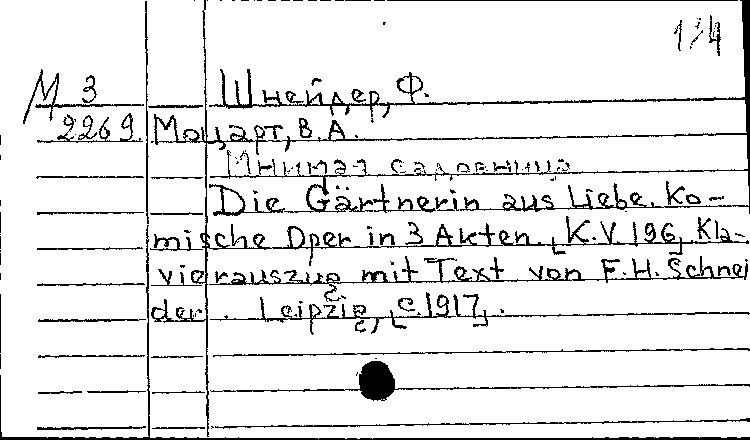 134
М 3 Шнейдер, Ф.
2269. Моцарт, В. А.
Мнимая садовница
Die Gärtnerin aus Liebe. Ko-
mische Oper in 3 Akten. [K.V. 196] Kla-
vierauszug mit Text von F. H. Schnei
der. Leipzig, [c.1917].